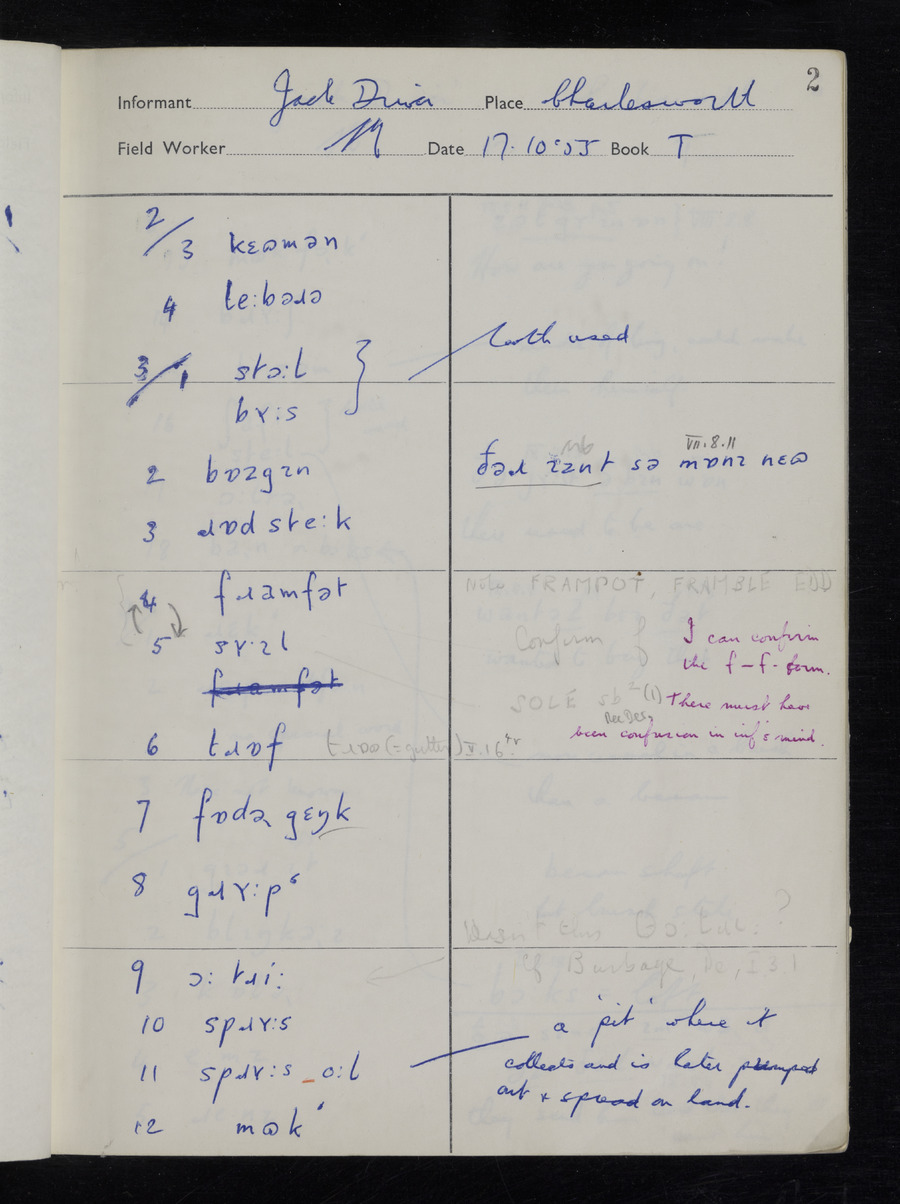 2
Informant Jack Driver Place Charlesworth
Field Worker Date 17.10.55 Book T
2/3 kɛɷmən
4 le:bəɹə
3/1 stɔ:l } both used
bɤ:s
2 bɒzgɪn ðəɹ ɪznt sə mɒnɪ nɛɷ VII.8.11
3 ɹɒdste:k
4 fɹamfət Note FRAMPOT, FRAMBLE EDD
5 sɤ·ɪl Confirm f I can confirm
the f–f- form.
fɹamfət SOLE sb² (1) There must have
been confusion in inf's mind.
6 tɹɒf tɹɒɷ (= gutter) V.16
7 fɒdə gɛŋk
8 gɹɤ:pˤ
?
Cf Burbage, Db, I.3.1
9 ɔ: tɹi:
10 spɹɤ:s a 'pit' where it
11 spɹɤ:s _ o:l collects and is later pumped
out & spread on land.
12 mɷkˈ